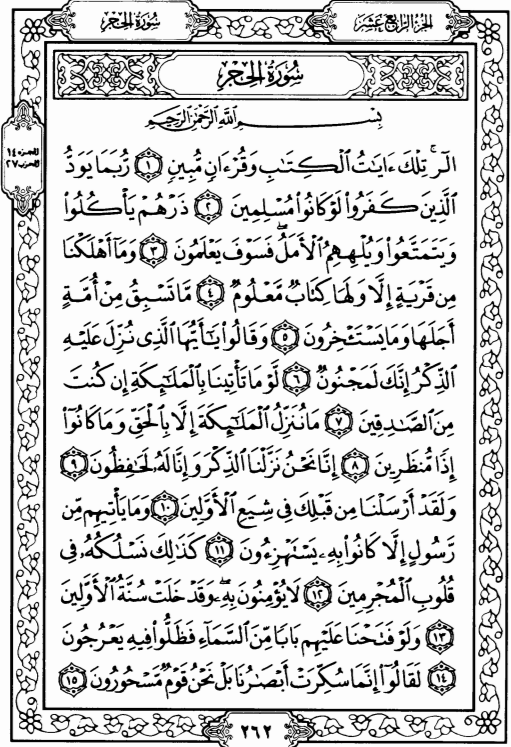 الجزء الرابع عشر
سورة الحجر
سُورَةُ الحِجْرِ
الجزء ١٤
الحزب ٢٧
بِسْمِ اللَّهِ الرَّحْمَٰنِ الرَّحِيمِ
الٓرۚ تِلْكَ ءَايَٰتُ الْكِتَٰبِ وَقُرْءَانٍ مُّبِينٍ ١ رُّبَمَا يَوَدُّ
الَّذِينَ كَفَرُوا۟ لَوْ كَانُوا۟ مُسْلِمِينَ ٢ ذَرْهُمْ يَأْكُلُوا۟
وَيَتَمَتَّعُوا۟ وَيُلْهِهِمُ الْأَمَلُۖ فَسَوْفَ يَعْلَمُونَ ٣ وَمَآ أَهْلَكْنَا
مِن قَرْيَةٍ إِلَّا وَلَهَا كِتَابٌ مَّعْلُومٌ ٤ مَّا تَسْبِقُ مِنْ أُمَّةٍ
أَجَلَهَا وَمَا يَسْتَـْٔخِرُونَ ٥ وَقَالُوا۟ يَٰٓأَيُّهَا الَّذِى نُزِّلَ عَلَيْهِ
الذِّكْرُ إِنَّكَ لَمَجْنُونٌ ٦ لَّوْ مَا تَأْتِينَا بِالْمَلَٰٓئِكَةِ إِن كُنتَ
مِنَ الصَّٰدِقِينَ ٧ مَا نُنَزِّلُ الْمَلَٰٓئِكَةَ إِلَّا بِالْحَقِّ وَمَا كَانُوٓا۟
إِذًا مُّنظَرِينَ ٨ إِنَّا نَحْنُ نَزَّلْنَا الذِّكْرَ وَإِنَّا لَهُۥ لَحَٰفِظُونَ ٩
وَلَقَدْ أَرْسَلْنَا مِن قَبْلِكَ فِى شِيَعِ الْأَوَّلِينَ ١٠ وَمَا يَأْتِيهِم مِّن
رَّسُولٍ إِلَّا كَانُوا۟ بِهِۦ يَسْتَهْزِءُونَ ١١ كَذَٰلِكَ نَسْلُكُهُۥ فِى
قُلُوبِ الْمُجْرِمِينَ ١٢ لَا يُؤْمِنُونَ بِهِۦۖ وَقَدْ خَلَتْ سُنَّةُ الْأَوَّلِينَ
١٣ وَلَوْ فَتَحْنَا عَلَيْهِم بَابًا مِّنَ السَّمَآءِ فَظَلُّوا۟ فِيهِ يَعْرُجُونَ
١٤ لَقَالُوٓا۟ إِنَّمَا سُكِّرَتْ أَبْصَٰرُنَا بَلْ نَحْنُ قَوْمٌ مَّسْحُورُونَ ١٥
٢٦٢